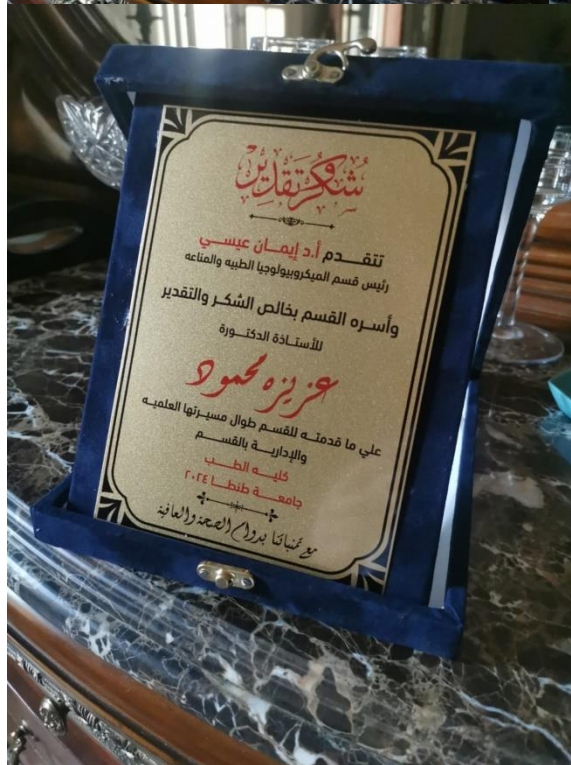 شكر وتقدير
تتقــدم أ.د إيمــان عيســي
رئيس قسم الميكروبيولوجيا الطبيه والمناعه
وأسره القسم بخالص الشكر والتقدير
للأستاذة الدكتــورة
عزيزه محمود
علي ما قدمتــه للقســم طوال مسيــرتها العلميــه
والإدارية بالقســم
كليــه الطــب
جامعــة طنطــا ٢٠٢٤
مع تمنياتنا بدوام الصحة والعافية